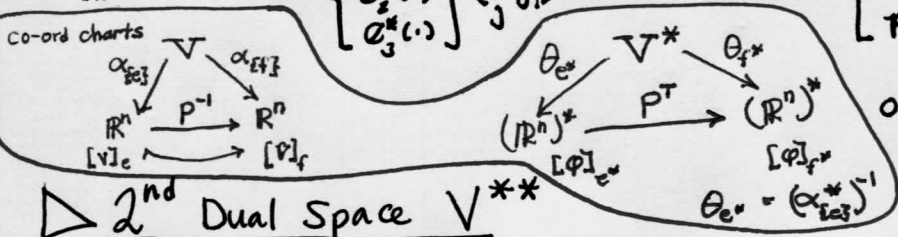 [ e₂*(·)
e₃*(·) ]
co-ord charts
V
α_{e} α_{f}
ℝⁿ P⁻¹ ℝⁿ
[v]_e [v]_f
V*
θ_e* θ_f*
(ℝⁿ)* Pᵀ (ℝⁿ)*
[φ]_e* [φ]_f*
θ_e* = (α*_{e})⁻¹
▷ 2nd Dual Space V**